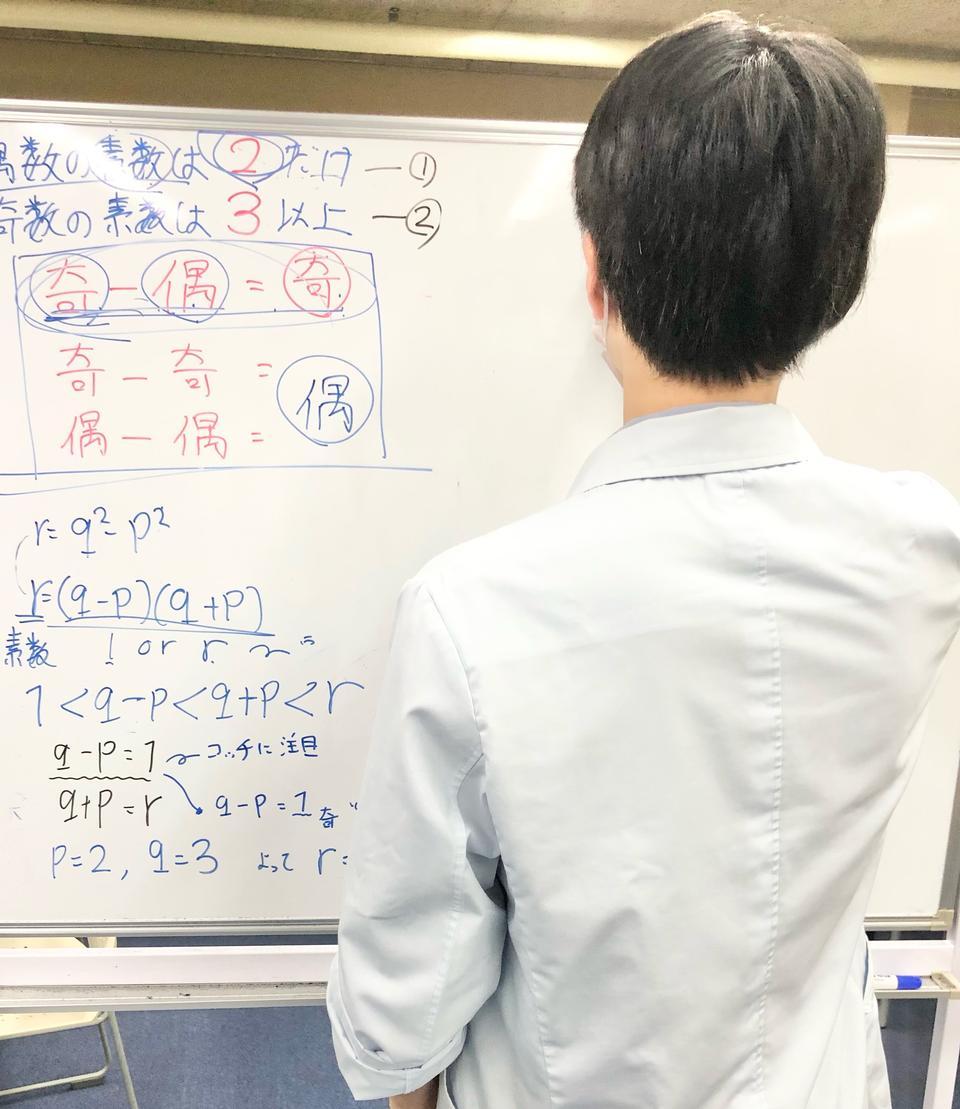 偶数の素数は 2 だけ ー①
奇数の素数は 3 以上 ー②
奇 − 偶 = 奇
奇 − 奇 =
偶 − 偶 = 偶
r = q² − p²
r = (q−p)(q+p)
素数 1 or r
1 < q−p < q+p < r
q−p = 1 コッチに注目
q+p = r q−p = 1 奇
p=2, q=3 よって r=